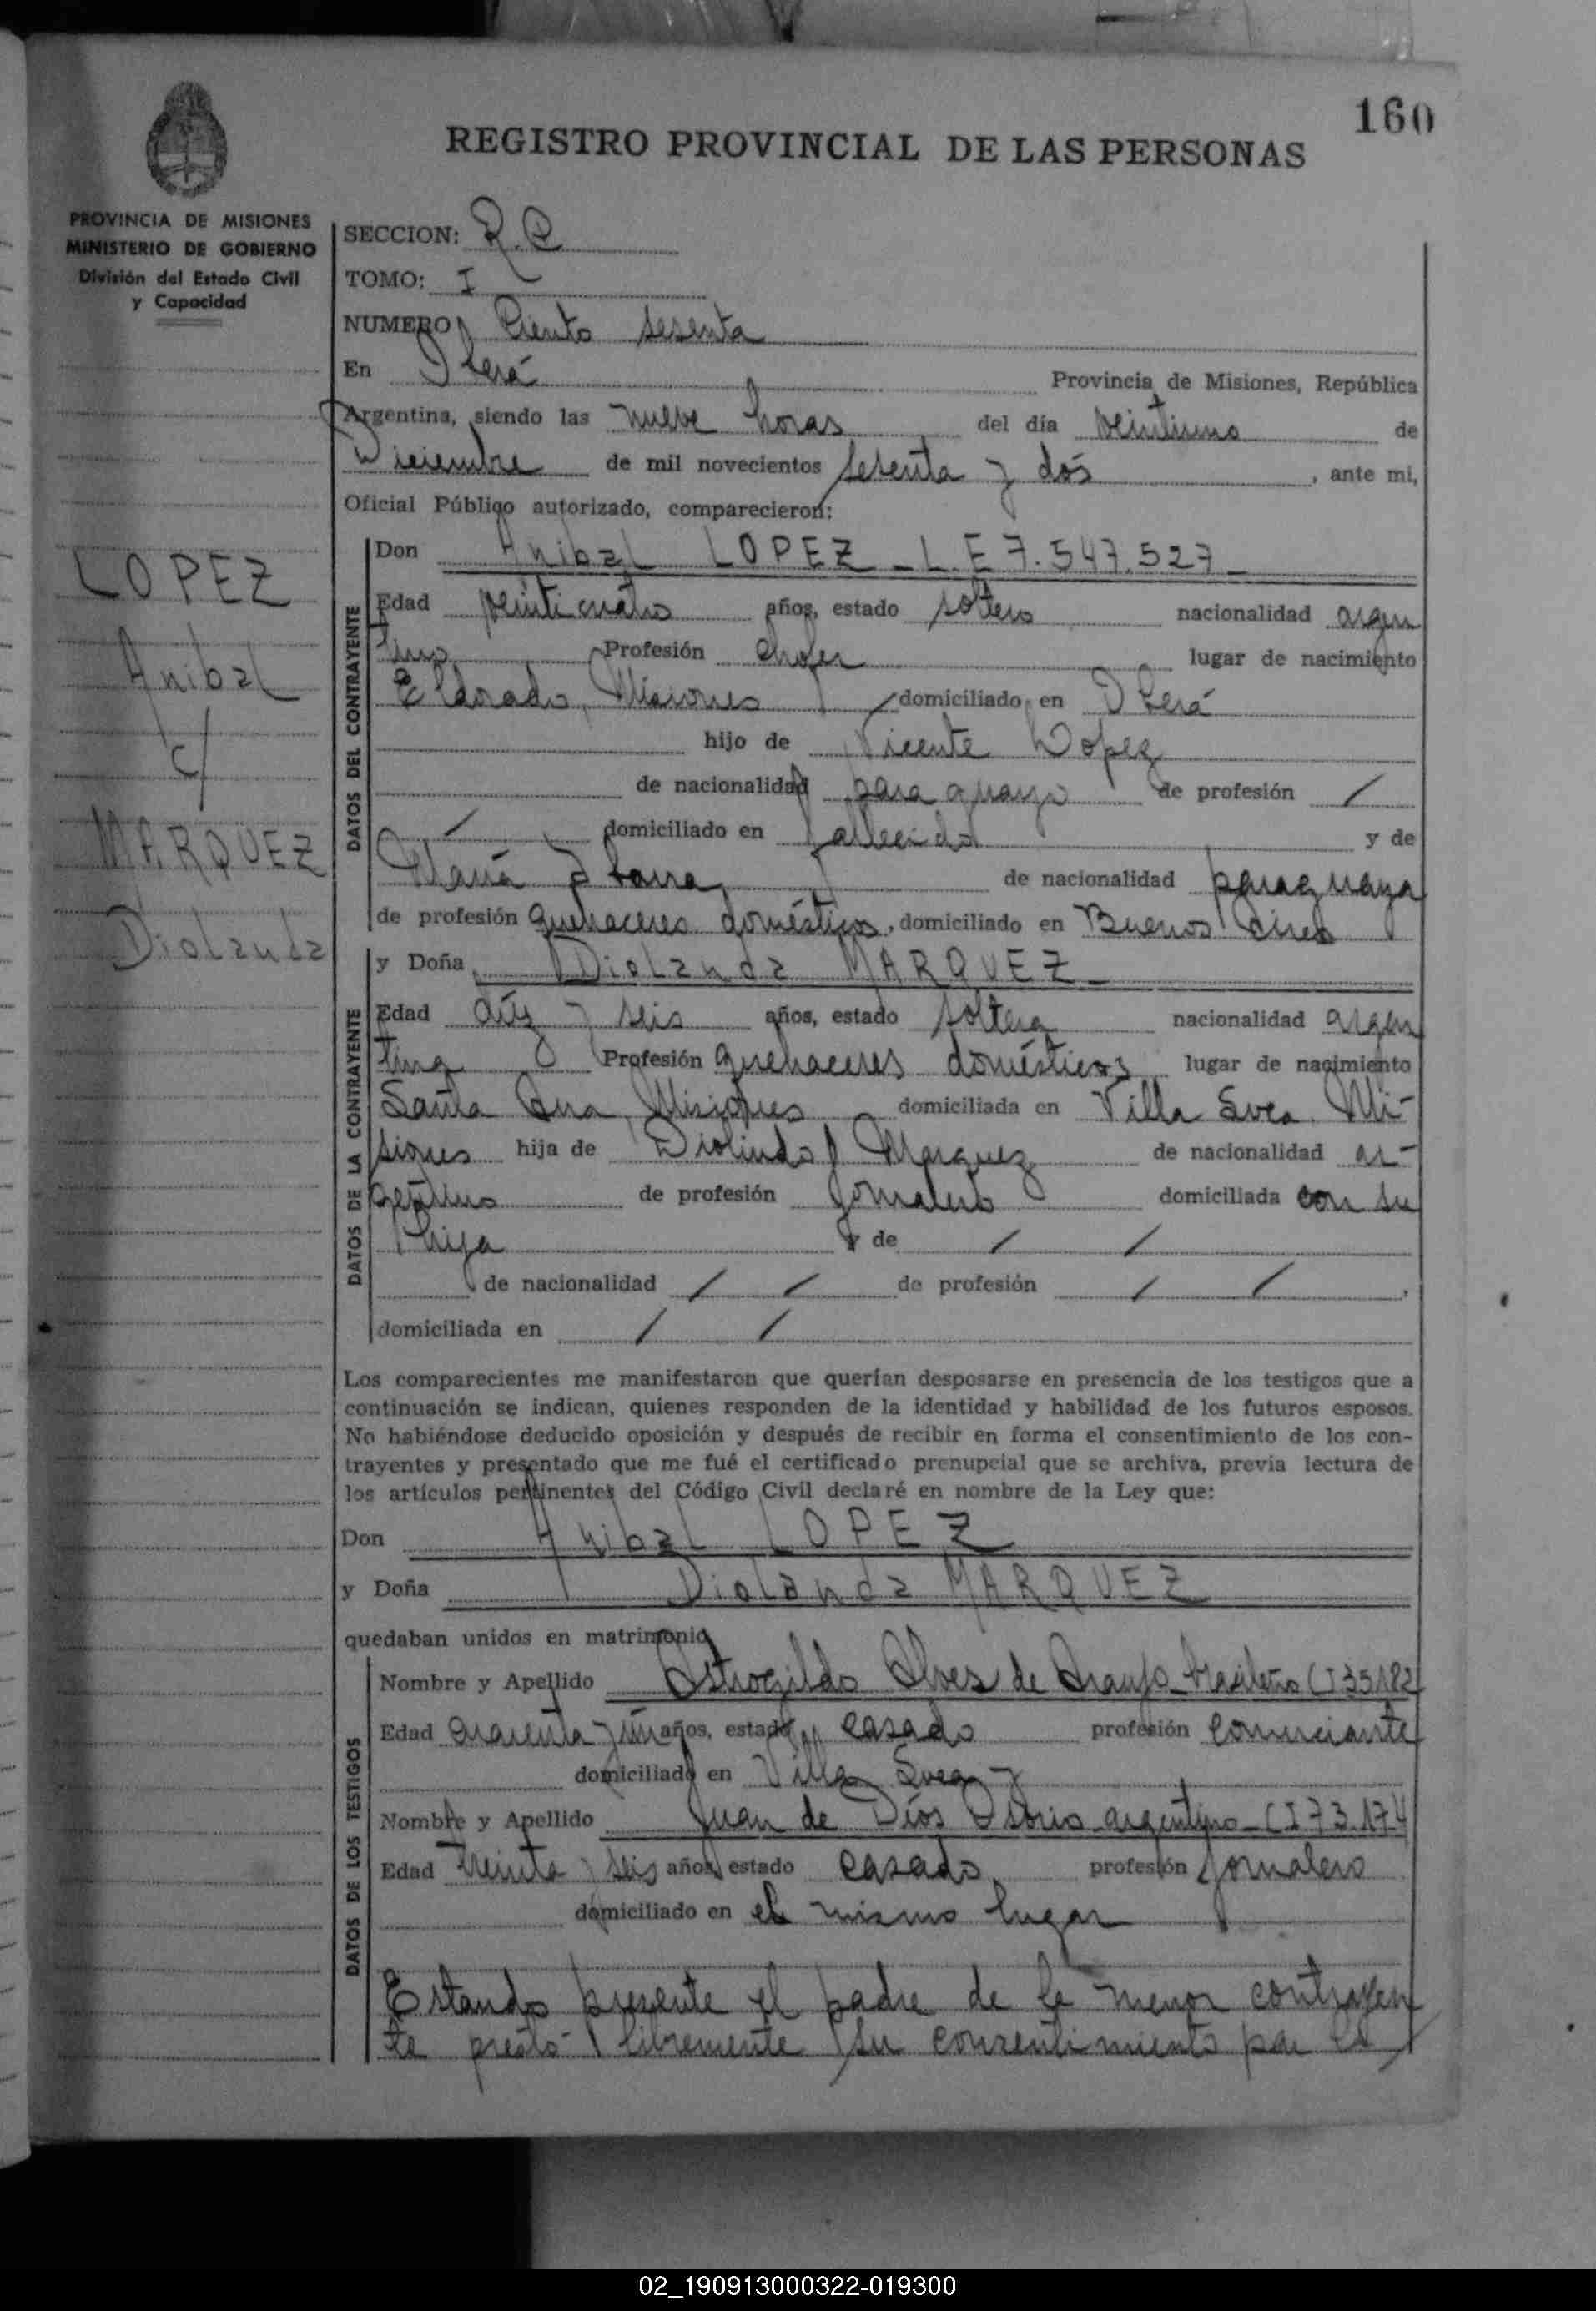 160
REGISTRO PROVINCIAL DE LAS PERSONAS
PROVINCIA DE MISIONES
MINISTERIO DE GOBIERNO
División del Estado Civil
y Capacidad
LOPEZ
Anibal
c/
MARQUEZ
Diolanda
SECCION: R.C
TOMO: I
NUMERO Ciento sesenta
En Oberá Provincia de Misiones, República
Argentina, siendo las nueve horas del día veintiuno de
Diciembre de mil novecientos setenta y dos , ante mi,
Oficial Público autorizado, comparecieron:
DATOS DEL CONTRAYENTE
Don Anibal LOPEZ - L.E 7.547.527 -
Edad veinticuatro años, estado soltero nacionalidad argen
tino Profesión chofer lugar de nacimiento
Eldorado, Misiones domiciliado en Oberá
hijo de Vicente Lopez
de nacionalidad paraguayo de profesión /
/ domiciliado en fallecido y de
María de nacionalidad paraguaya
de profesión quehaceres domésticos, domiciliado en Buenos Aires
DATOS DE LA CONTRAYENTE
y Doña Diolanda MARQUEZ -
Edad diez y seis años, estado soltera nacionalidad argen
tina Profesión quehaceres domésticos lugar de nacimiento
Santa Ana, Misiones domiciliada en Villa Svea. Mi-
siones hija de Diolindo Marquez de nacionalidad ar-
gentino de profesión Jornalero domiciliada con su
hija y de / /
de nacionalidad / / de profesión / / ,
domiciliada en / /
Los comparecientes me manifestaron que querían desposarse en presencia de los testigos que a
continuación se indican, quienes responden de la identidad y habilidad de los futuros esposos.
No habiéndose deducido oposición y después de recibir en forma el consentimiento de los con-
trayentes y presentado que me fué el certificado prenupcial que se archiva, previa lectura de
los artículos pertinentes del Código Civil declaré en nombre de la Ley que:
Don Anibal LOPEZ
y Doña Diolanda MARQUEZ
quedaban unidos en matrimonio
DATOS DE LOS TESTIGOS
Nombre y Apellido Astrogildo Alves de Araujo - brasileño CI 35182
Edad cuarenta y un años, estado casado profesión Comerciante
domiciliado en Villa Svea y
Nombre y Apellido Juan de Dios Osorio - argentino - CI 73.174
Edad treinta y seis años, estado casado profesión Jornalero
domiciliado en el mismo lugar
Estando presente el padre de la menor contrayen
te prestó libremente su consentimiento
02_190913000322-019300